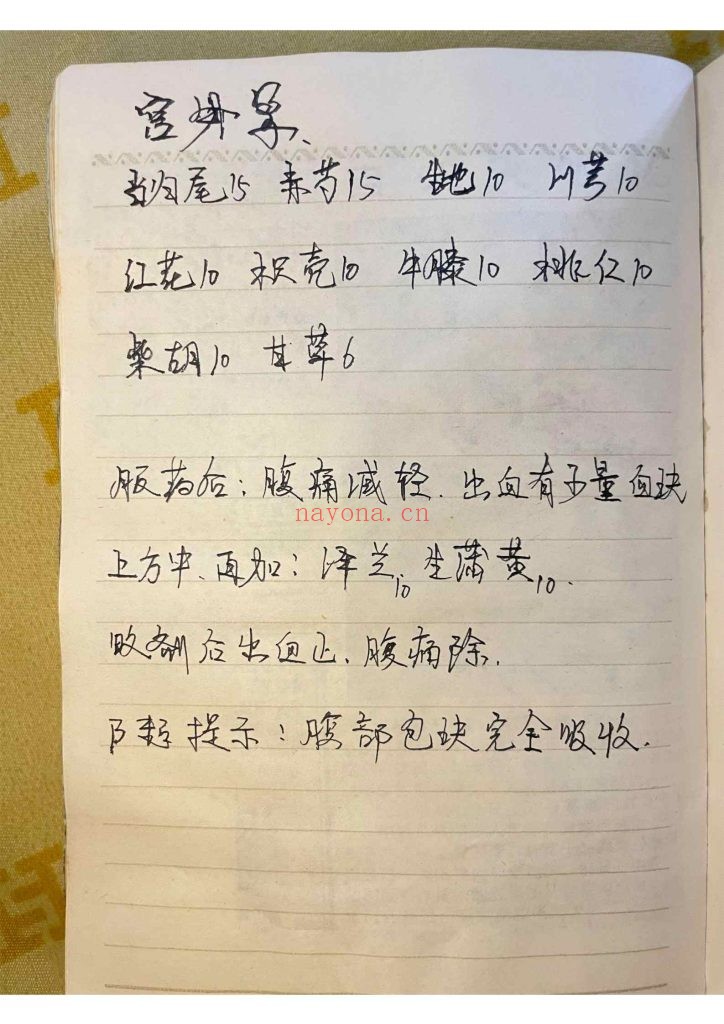 宫外孕、
当归尾15 赤芍15 生地10 川芎10
红花10 枳壳10 牛膝10 桃仁10
柴胡10 甘草6
服药后：腹痛减轻．出血有少量血块
nayona.cn
上方中、再加：泽兰10 生蒲黄10．
数剂后出血止、腹痛除．
B超提示：腹部包块完全吸收．